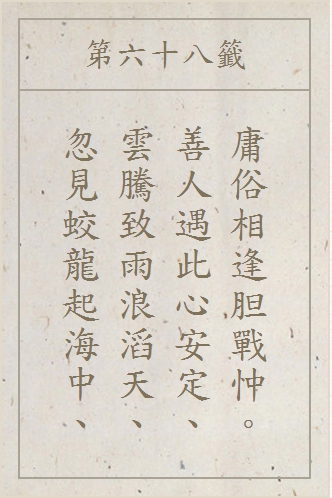 第六十八籤
忽見蛟龍起海中、
雲騰致雨浪滔天、
善人遇此心安定、
庸俗相逢胆戰忡。